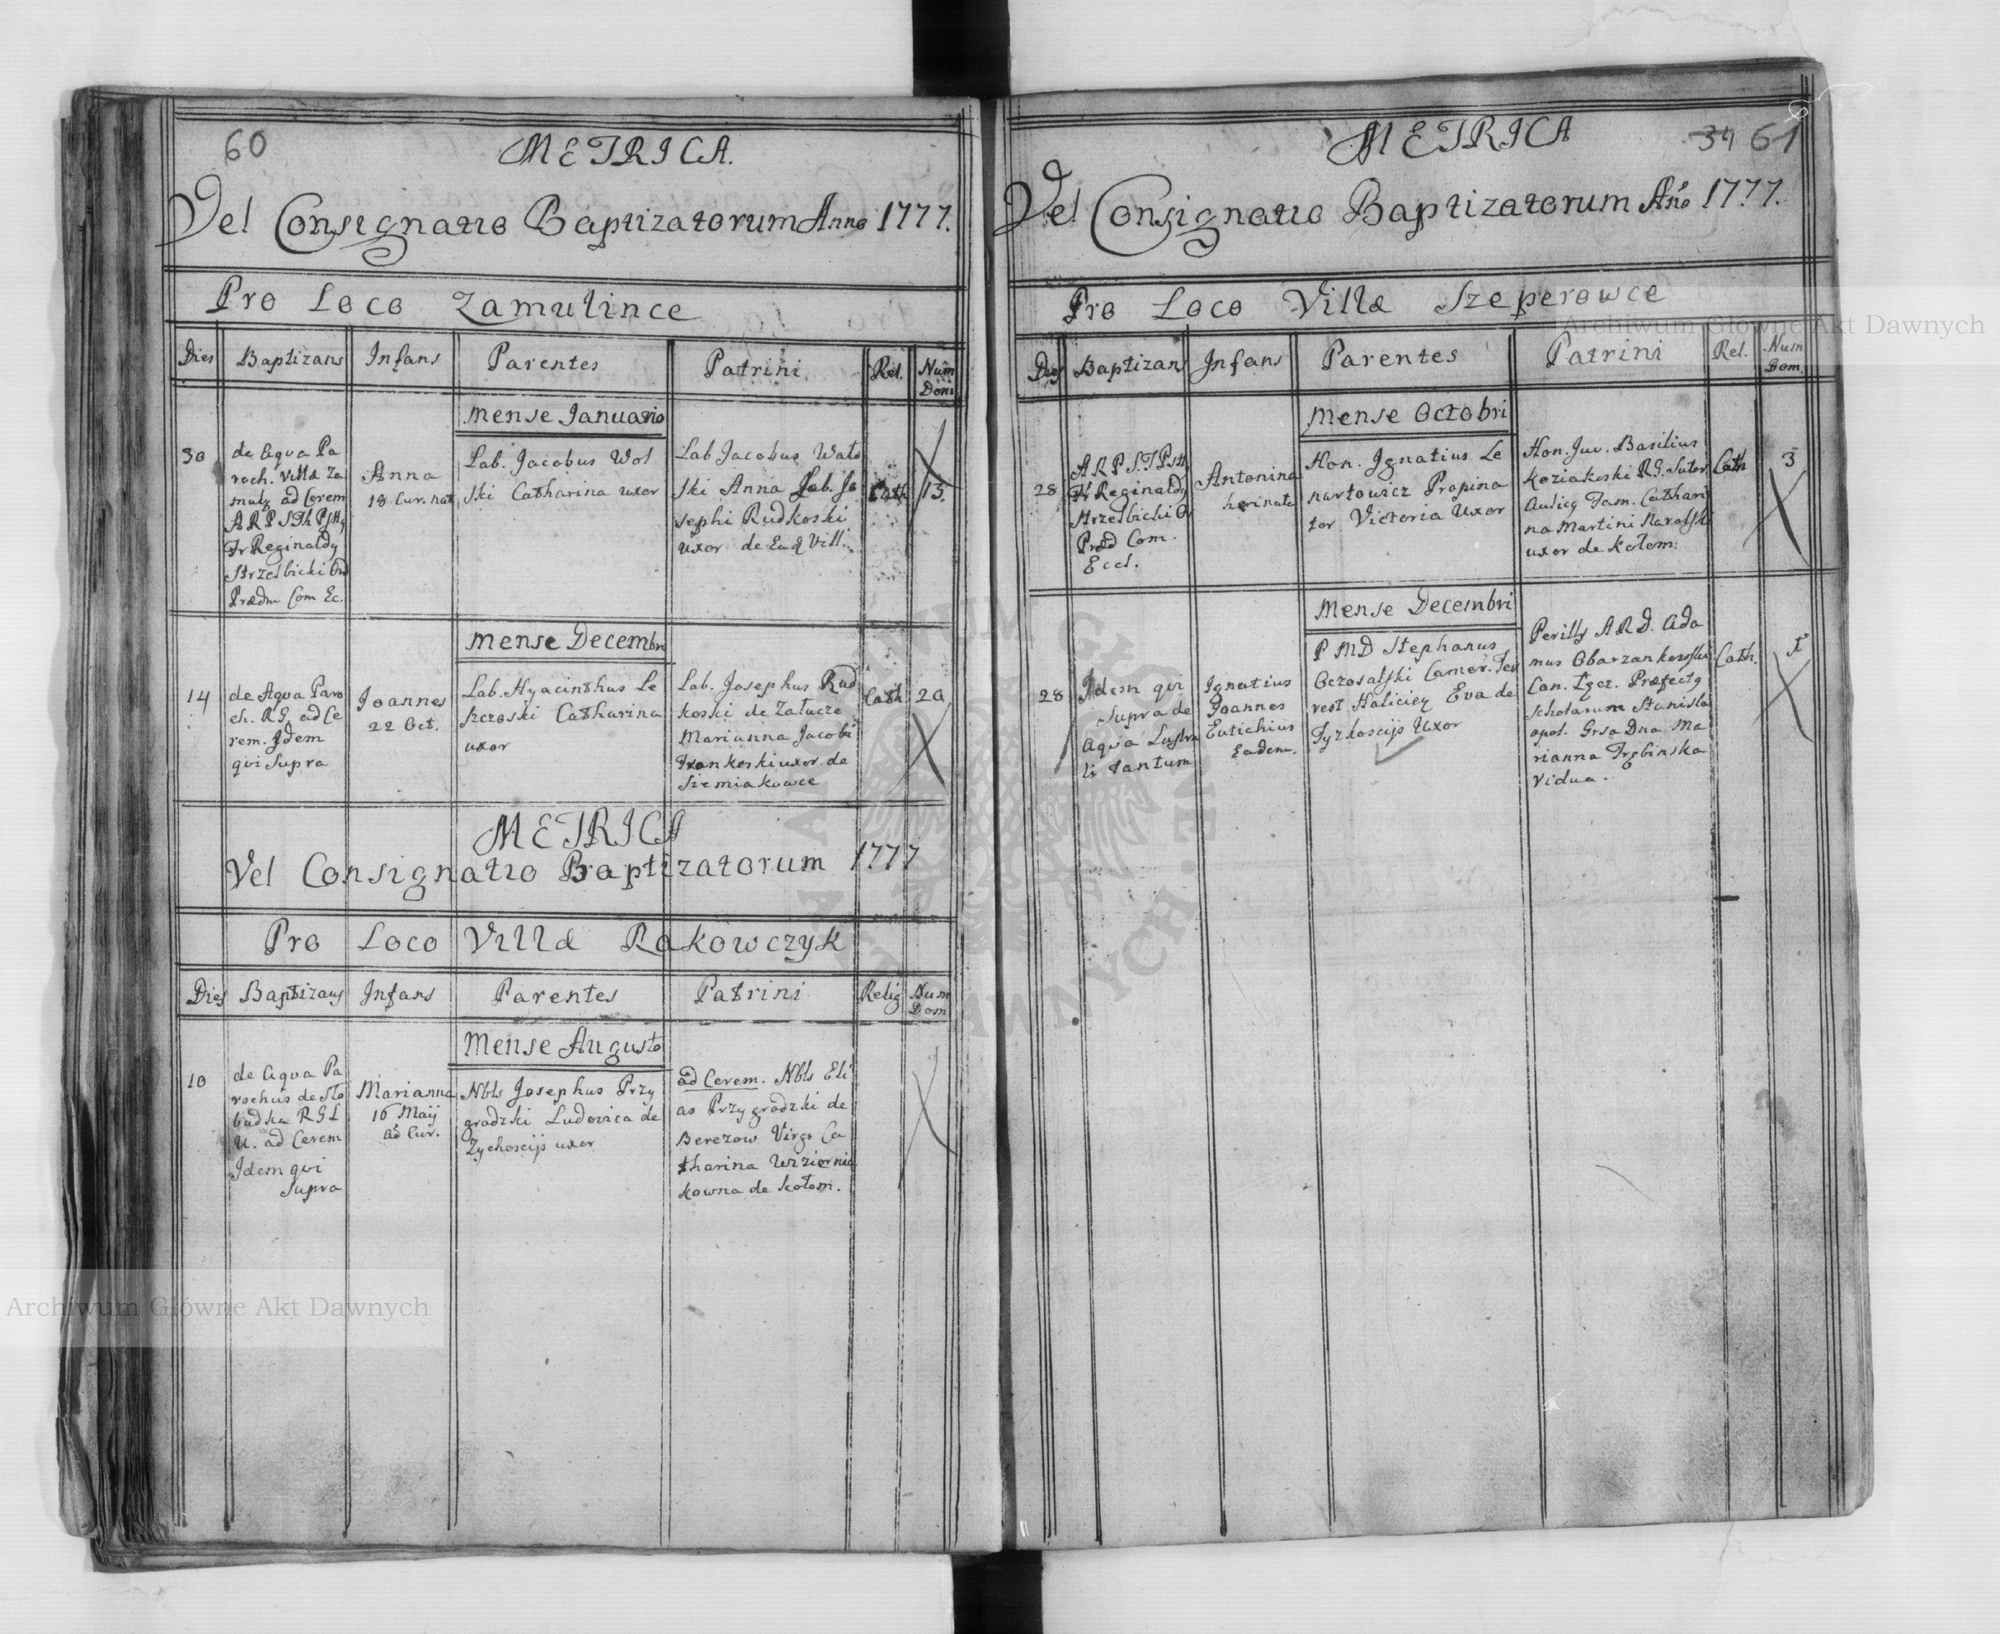 60
METRICA.
Vel Consignatio Baptizatorum Anno 1777.
Pro Loco Zamulince
Dies Baptizans Infans Parentes Patrini Rel. Num Dom
Mense Januario
30
de Aqva Pa
roch. Villæ Za
mulz ad Cerem
A R P S Th
Fr Reginaldg
Strzelbicki Ord
Prædm Com Ec.
Anna
18 Cur. nat
Lab. Jacobus Wol
ski Catharina uxor
Lab Jacobus Wato
ski Anna Lab. Jo
sephi Rudkoski
uxor de Ead Vill.
Cath
13.
Mense Decembri
14
de Aqva Paro
ch. RG ad Ce
rem. Idem
qvi Supra
Joannes
22 Oct.
Lab. Hyacinthus Le
szczoski Catharina
uxor
Lab. Josephus Rud
koski de Zatucze
Marianna Jacobi
Frankoski uxor de
Siemiakowce
Cath
20
METRICA
Vel Consignatio Baptizatorum 1777
Pro Loco Villæ Rakowczyk
Dies Baptizans Infans Parentes Patrini Relig Num Dom
Mense Augusto
10
de Aqva Pa
rochus de Sło
budka RGL
U. ad Cerem
Idem qvi
Supra
Marianna
16 Maij
ad Cur.
Nbls Josephus Przy
grodzki Ludovica de
Zychoscijs uxor
ad Cerem. Nbls Eli
as Przygrodzki de
Berezow Virgo Ca
tharina Wziernia
kowna de Kołom.
METRICA
34 61
Vel Consignatio Baptizatorum Año 1777.
Pro Loco Villæ Szeperowce
Dies Baptizans Infans Parentes Patrini Rel. Num Dom.
Mense Octobri
28
A R P S T
Fr Reginaldg
Strzelbicki O
Præd Com.
Eccl.
Antonina
heri nata
Hon. Ignatius Le
nartowicz Propina
tor Victoria Uxor
Hon. Juv. Basilius
Koziakoski RG. Sutor
Aulicg Fam. Cathari
na Martini
uxor de Kołom:
Cath
3
Mense Decembri
28
Idem qvi
Supra de
Aqva Lustra
li tantum
Ignatius
Joannes
Eutichius
Eadem.
P M D Stephanus
Oczosalski Camer. Ter
rest Halicieg Eva de
Tyzkoscijs Uxor
Perillg A R D. Ada
mus Obarzankowski
Can. Præfectg
Scholarum Stanisla
opol. Grsa Dna Ma
rianna Trębinska
Vidua.
Cath.
1
Archiwum Główne Akt Dawnych
Archiwum Główne Akt Dawnych